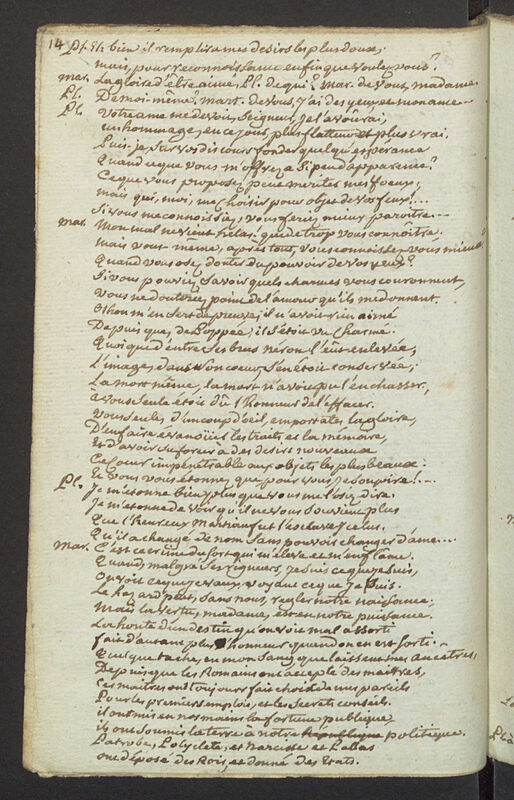 14 Pl. Eh bien il remplira mes desirs les plus doux;
mais, pour reconnoissance enfin que voulez vous?
Mar. La gloire d'être aimé, Pl. de qui? Mar. de vous, madame.
Pl. De moi-même? Mart. de vous, j'ai des yeux et mon ame...
Pl. Votre ame me devoit, Seigneur, je l'avoûrai,
un hommage, en ce jour, plus flatteur et plus vrai.
Puis-je sur vos discours fonder quelqu'espérance
Quand ce que vous m'offrez a si peu d'apparence?
Ce que vous proposez peut meriter mes
mais qui, moi, me choisir pour objet de vos feux!...
Si vous me connoissiez, vous feriez mieux paroître...
Mar. Mon mal ne vient helas! que de trop vous connoître.
Mais vous même, après tout, vous connoissez vous mieux
Quand vous osez douter du pouvoir de vos yeux?
Si vous pouviez savoir quels charmes vous couronnent,
Vous ne douteriez point de l'amour qu'ils me donnent.
Othon m'en sert de preuve, il n'avoit rien aimé
Depuis que, de Poppée, il s'étoit vu charmé.
Quoique d'entre ses bras néron l'eût enlevée,
L'image, dans son coeur, s'en étoit conservée;
La mort même, la mort n'avoit pu l'en chasser,
à vous seule étoit dû l'honneur de l'effacer.
Vous seule, d'un coup d'oeil, emportates la gloire,
D'en faire évanouir les traits et la mémoire,
Et d'avoir su forcer à des desirs nouveaux
Ce coeur impénétrable aux objets les plus beaux:
Et vous vous étonnez que pour vous je soupire!...
Pl. Je m'étonne bien plus que vous me l'osiez dire.
Je m'étonne de voir qu'il ne vous souvient plus
Que l'heureux Martian fut l'esclave Icelus.
Qu'il a changé de nom sans pouvoir changer d'ame...
Mar. C'est ce crime du sort qui m'éleve et m'enflame.
Quand, malgré ses rigueurs, je suis ce que je suis,
On voit ce que je vaux, voyant ce que je puis.
Le hazard peut, sans nous, regler notre naissance;
Mais la vertu, madame, est en notre puissance.
La honte d'un destin qu'on voit mal assorti
fait d'autant plus d'honneur quand on en est sorti.
Quelque tache, en mon sang, que laissent mes ancêtres,
Depuis que les Romains ont accepté des maîtres,
Ces maîtres ont toujours fait choix de mes pareils
Pour les premiers emplois, et les secrets conseils.
ils ont mis en nos mains la fortune publique,
ils ont soumis la terre à notre politique.
Patrobe, Polyclete, et Narcisse et Pallas
ont déposé des Rois, et donné des Etats.